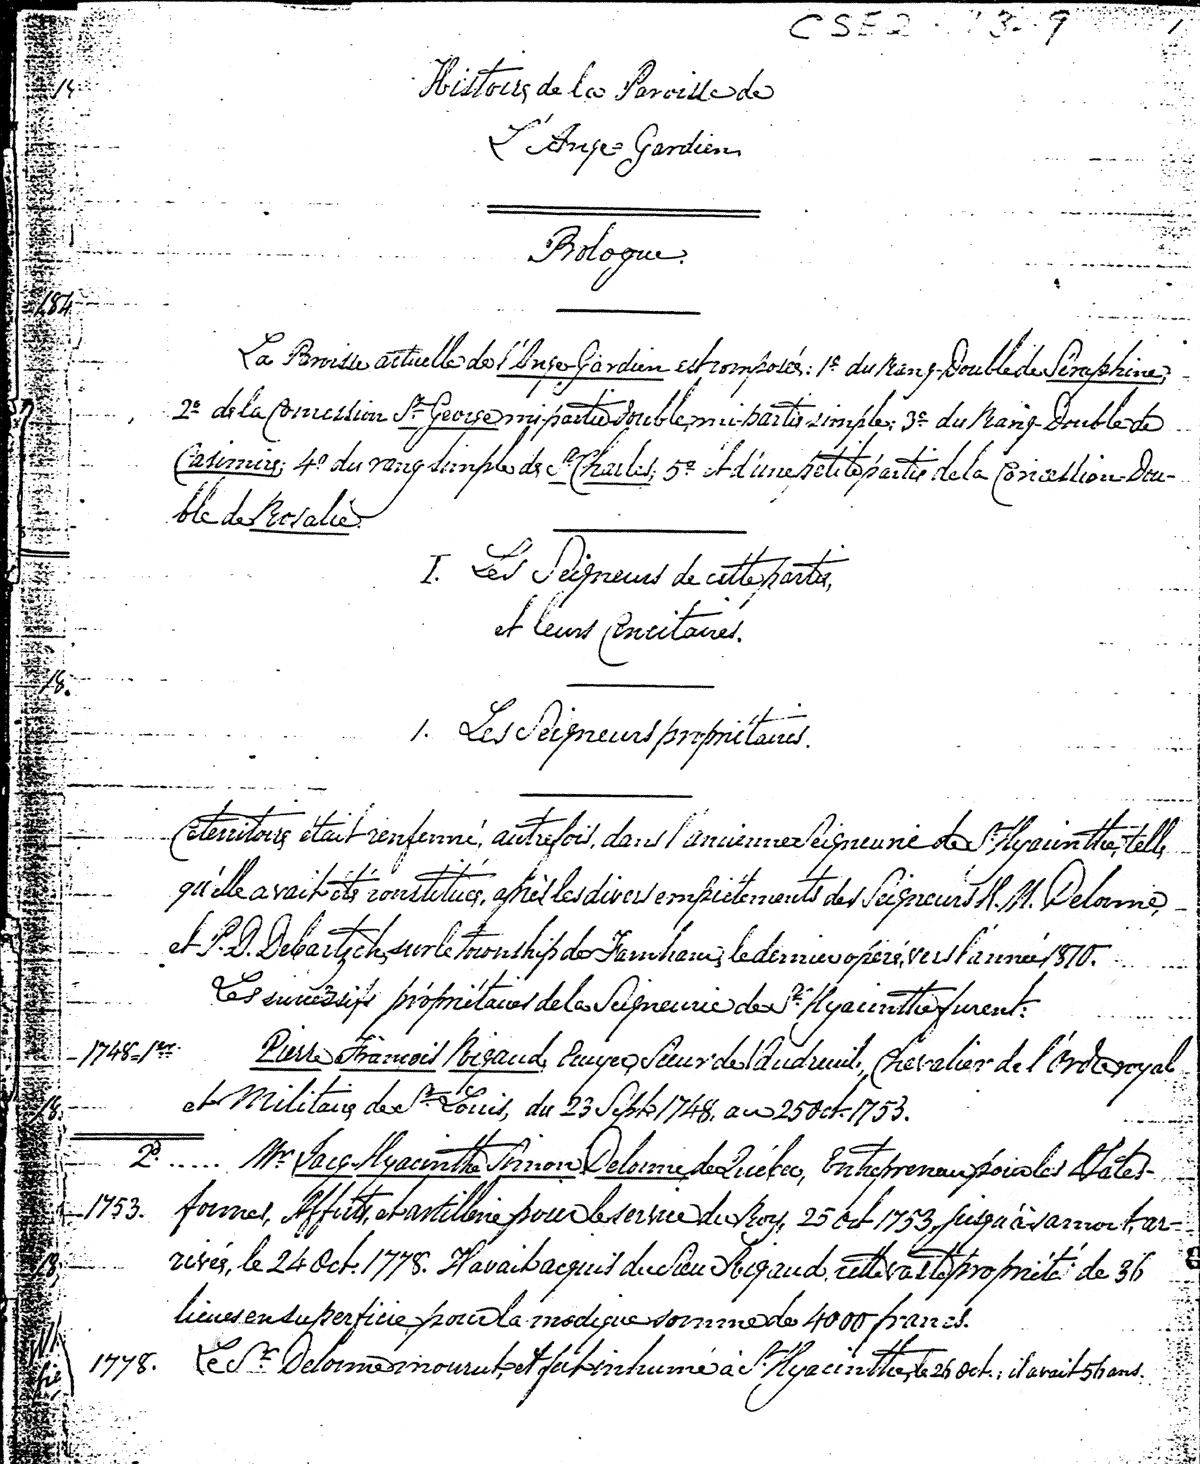 Histoire de la Paroisse de
L'Ange-Gardien
Prologue.
La Paroisse actuelle de l'Ange-Gardien est composée: 1º du Rang Double de Séraphine;
2º de la Concession St George mi-partie double, mi-partie simple; 3º du Rang Double de
Casimire; 4º du rang simple de St Charles; 5º et d'une petite partie de la Concession Dou-
ble de Rosalie.
I. Les Seigneurs de cette partie,
et leurs Concitaires.
1. Les Seigneurs propriétaires.
Ce territoire était renfermé, autrefois, dans l'ancienne Seigneurie de St Hyacinthe, telle
qu'elle avait été constituée, après les divers empiètements des Seigneurs H. M. Delorme,
et P. D. Debartzch, sur le township de Farnham; le dernier opéré, vers l'année 1810.
Les successifs propriétaires de la Seigneurie de St Hyacinthe furent:
1748=1er Pierre François Rigaud, Ecuyer, Sieur de Vaudreuil, Chevalier de l'Ordre royal
et Militaire de St Louis, du 23 Sept. 1748. au 25 Oct. 1753.
2º ..... Mr Jacq-Hyacinthe Simon Delorme, de Québec, Entrepreneur pour les Plates-
1753. formes, Affuts, et artillerie pour le service du Roy, 25 Oct 1753, jusqu'à sa mort, ar-
rivée, le 24 Oct. 1778. Il avait acquis du Sieur Rigaud, cette vaste propriété de 36
lieues en superficie, pour la modique somme de 4000 francs.
1778. Le Sr Delorme mourut, et fut inhumé à St Hyacinthe, le 26 Oct.; il avait 56 ans.